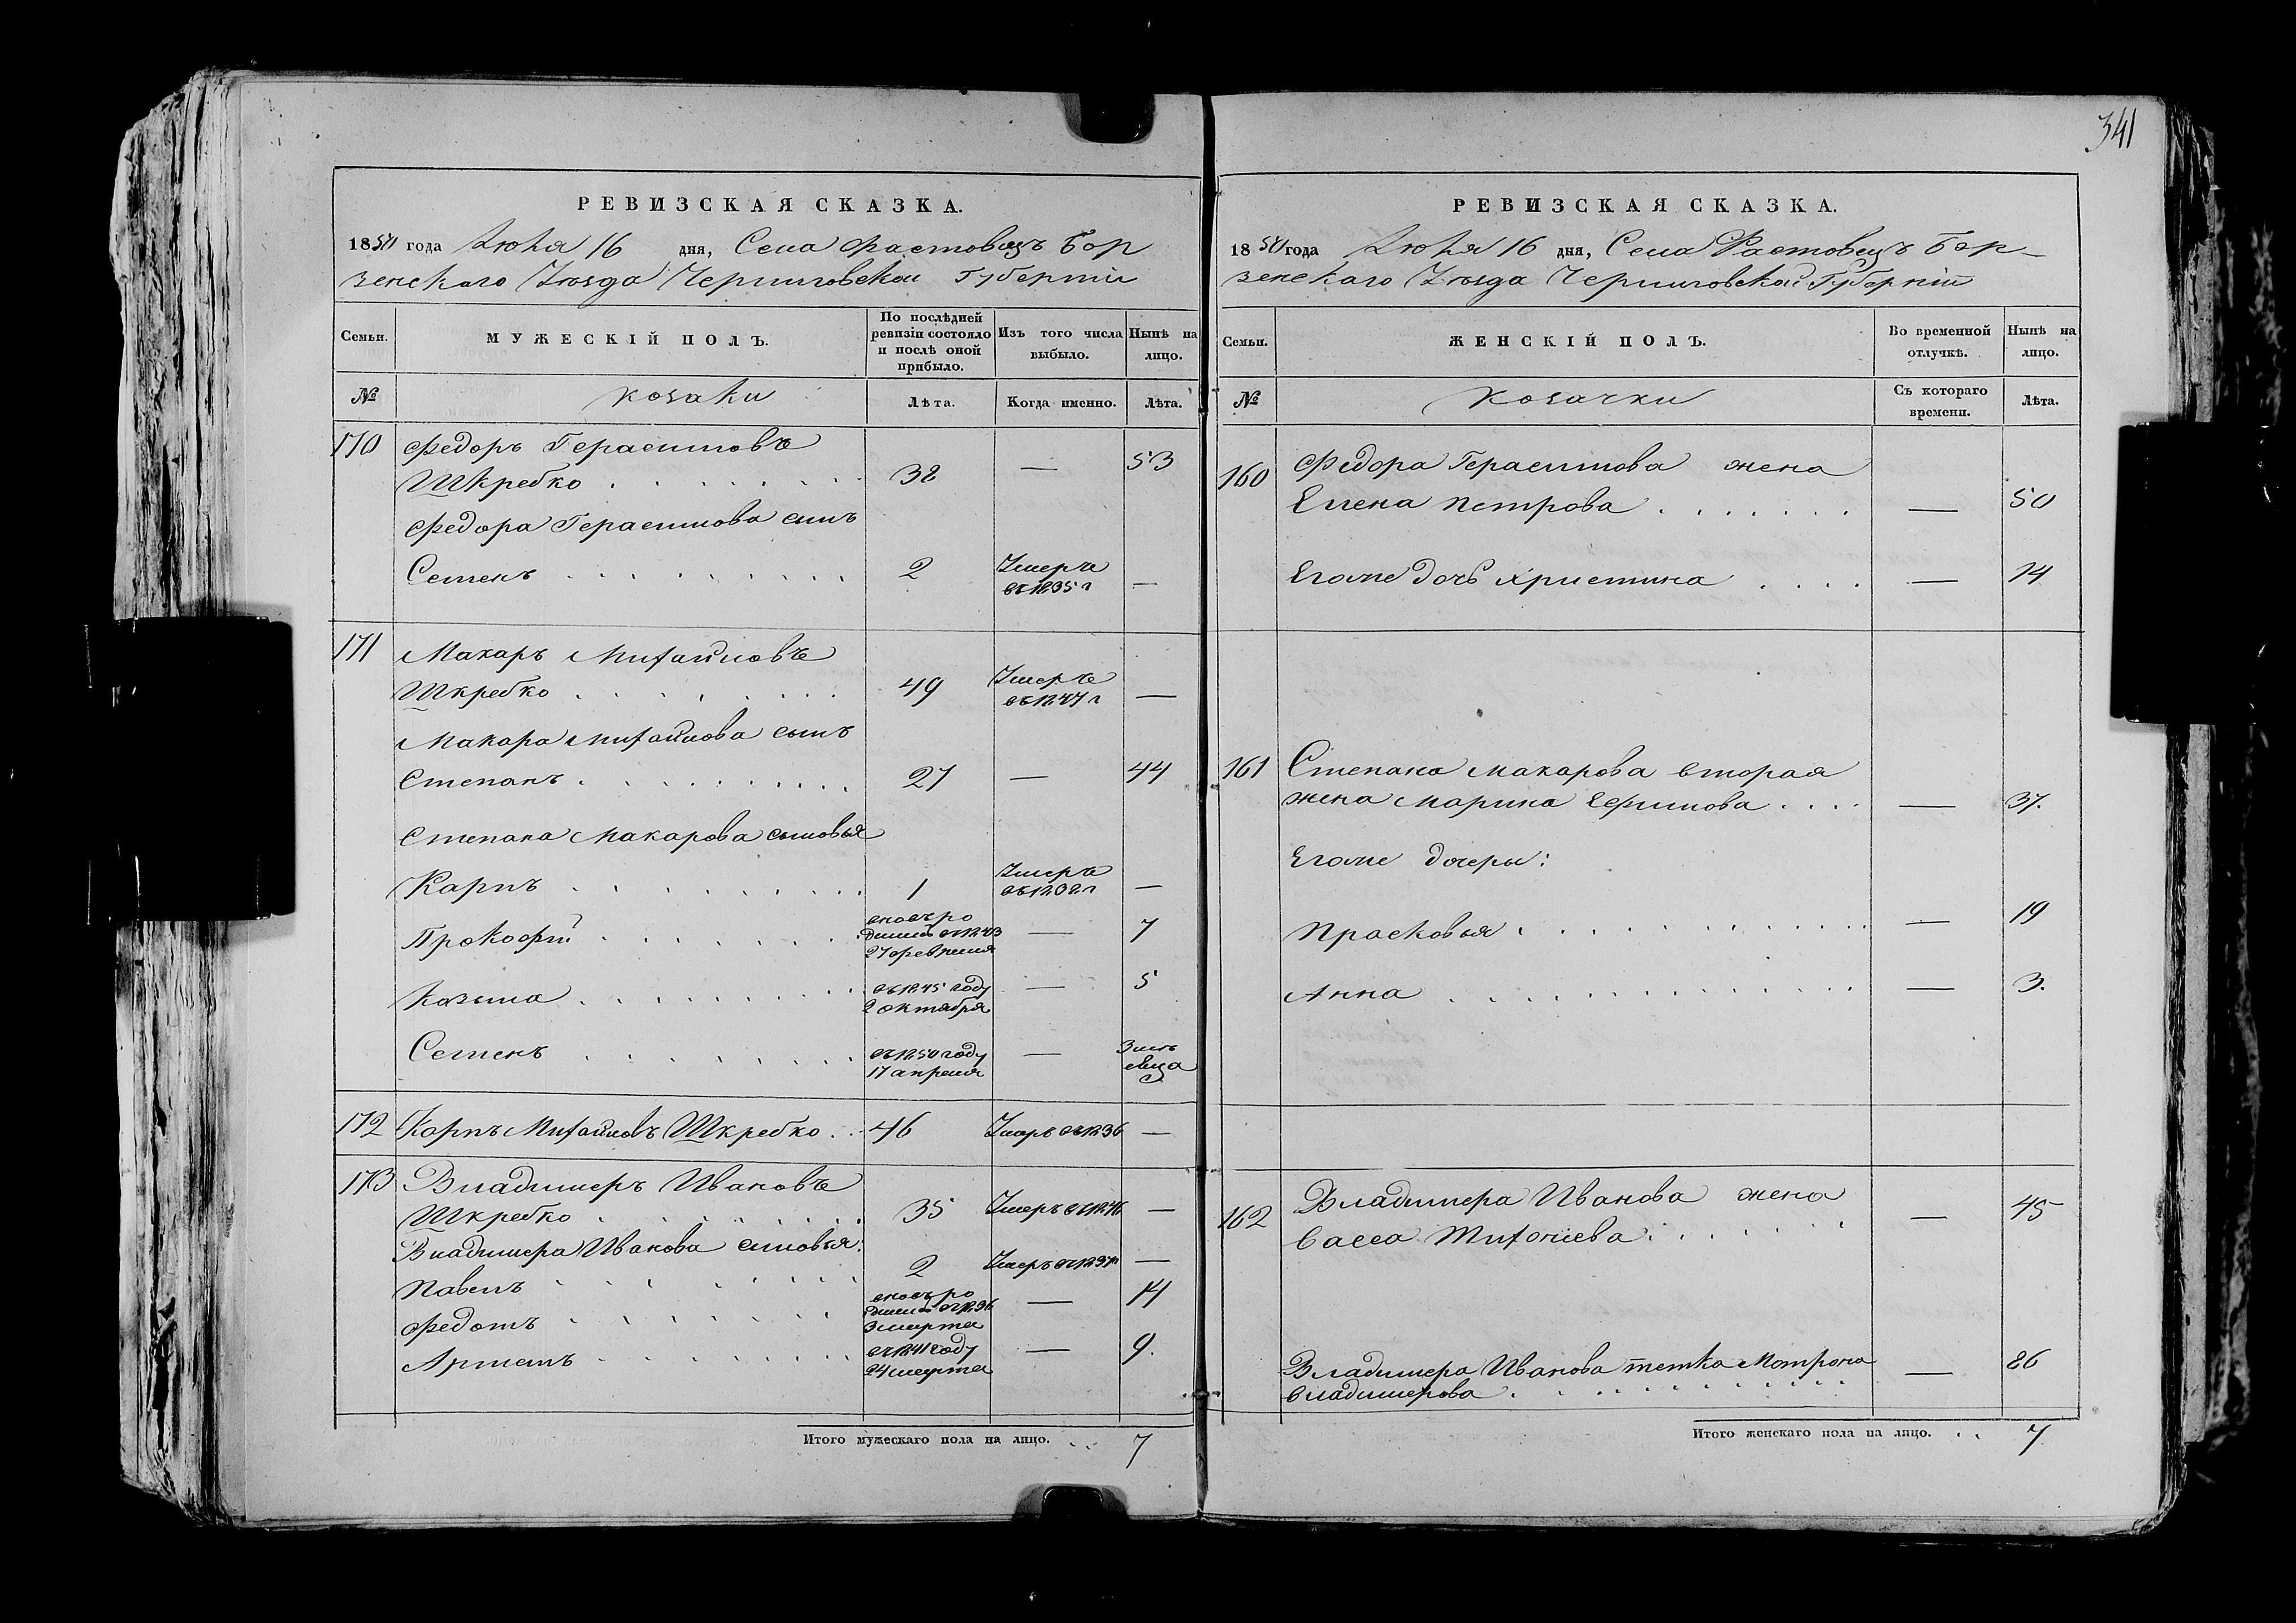 341
РЕВИЗСКАЯ СКАЗКА.
1850 года Июля 16 дня, Села Фастовецъ Бор
зенскаго Уѣзда Черниговской Губерніи
Семьи.
МУЖЕСКІЙ ПОЛЪ.
По послѣдней ревизіи состояло и послѣ оной прибыло.
Изъ того числа выбыло.
Нынѣ на лицо.
№ козаки Лѣта. Когда именно. Лѣта.
170 Федоръ Герасимовъ
Шкребко 38 — 53
Федора Герасимова сынъ
Семенъ 2 Умеръ —
въ 1835 г
171 Макаръ Михайловъ
Шкребко 49 Умеръ —
въ 1847 г
Макара Михайлова сынъ
Степанъ 27 — 44
Степана Макарова сыновья
Карпъ 1 Умеръ —
Прокофій вновь ро
дился въ 1843 — 7
27 февраля
Козьма въ 1845 году — 5
2 октября
Семенъ въ 1850 году — 3 мѣ
17 апреля сяца
172 Карпъ Михайловъ Шкребко 46 Умеръ въ 1836 —
173 Владимеръ Ивановъ
Шкребко 35 Умеръ въ 1846 —
Владимера Иванова сыновья:
Павелъ 2 Умеръ —
Федотъ вновь ро
дился въ 1836 — 14
3 марта
Артемъ въ 1841 году — 9.
24 марта
Итого мужескаго пола на лицо. 7
РЕВИЗСКАЯ СКАЗКА.
1850 года Июля 16 дня, Села Фастовецъ Бор-
зенскаго Уѣзда Черниговской Губерніи
Семьи.
ЖЕНСКІЙ ПОЛЪ.
Во временной отлучкѣ.
Нынѣ на лицо.
№ козачки Съ котораго времени. Лѣта.
160 Федора Герасимова жена
Елена Петрова — 50
Егоже дочь Христина — 14
161 Степана Макарова вторая
жена Марина Ефимова — 37.
Егоже дочеры:
Прасковья — 19
Анна — 3.
162 Владимера Иванова жена
Васса Тихонiева — 45
Владимера Иванова тетка Матрона — 86
Владимерова
Итого женскаго пола на лицо. 7